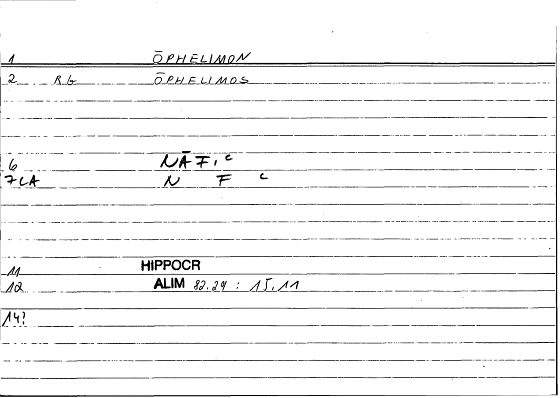 1 ŌPHELIMON
2 RG ŌPHELIMOS
6 NĀFIʿ
7LA N F ʿ
11 HIPPOCR
12 ALIM 82.24 : 15.11
14?